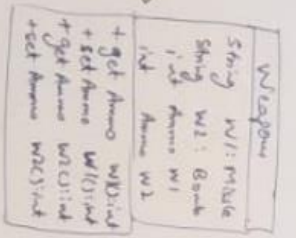 Weapons
String W1: Missle
String W2: Bomb
int Ammo W1
int Ammo W2
+ get Ammo W1():int
+ set Ammo W1():int
+ get Ammo W2():int
+ set Ammo W2():int